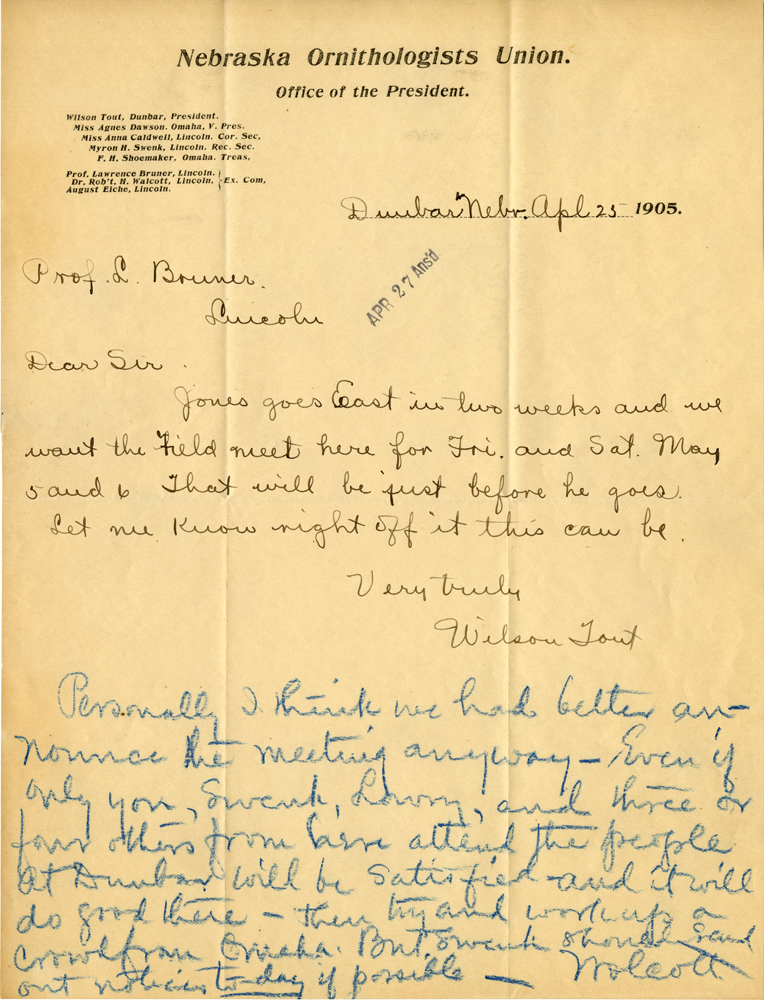 Nebraska Ornithologists Union.
Office of the President.
Wilson Tout, Dunbar, President.
Miss Agnes Dawson. Omaha, V. Pres.
Miss Anna Caldwell, Lincoln. Cor. Sec,
Myron H. Swenk, Lincoln. Rec. Sec.
F. H. Shoemaker, Omaha. Treas,
Prof. Lawrence Bruner, Lincoln.
Dr. Rob't, H. Walcott, Lincoln, Ex. Com,
August Eiche, Lincoln.
Dunbar Nebr. Apl 25 1905.
APR 27 Ans'd
Prof. L. Bruner.
Lincoln
Dear Sir.
Jones goes East in two weeks and we
want the Field meet here for Fri. and Sat. May
5 and 6 That will be just before he goes.
Let me know right off if this can be.
Very truly
Wilson Tout
Personally I think we had better an-
nounce the meeting anyway – Even if
only you, Swenk, Lowry, and three or
four others from here attend the people
at Dunbar will be satisfied – and it will
do good there – then try and work up a
crowd from Omaha. But Swenk should send
out notices to-day if possible — Wolcott